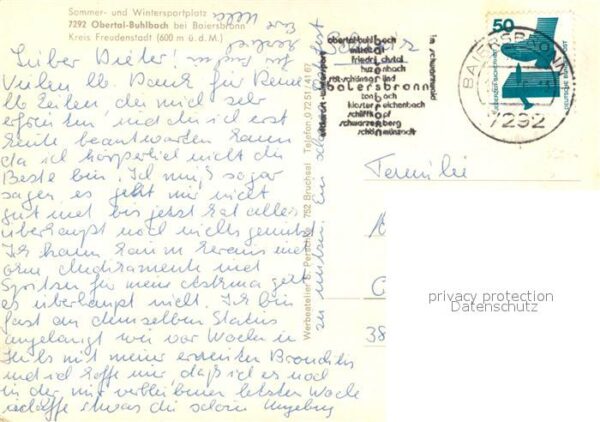 Sommer- und Wintersportplatz
7292 Obertal-Buhlbach bei Baiersbronn
Kreis Freudenstadt (600 m ü. d. M.)
Lieber Dieter!
Vielen lb Dank für Deine
lb Zeilen die mich sehr
erfreuten und die ich erst
heute beantworten kann
da ich körperlich nicht die
Beste bin. Ich muß sogar
sagen es geht mir nicht
gut und bis jetzt hat alles
überhaupt noch nichts genützt
Ich kann kaum heraus und
ohne Medikamente und
Spritzen für mein Asthma geht
es überhaupt nicht. Ich bin
fast an demselben Status
angelangt wie vor Wochen in
mit meiner erneuten Bronchitis
und ich hoffe nur daß ich es noch
in der mir verbliebenen letzten Woche
schaffe etwas die schöne Umgebung
zu
Werbeatelier S. Perschke 752 Bruchsal Telefon 0 72 51 / 41 67
obertal-buhlbach
mitteltal
friedrichstal
huzenbach
röt-schönegründ
baiersbronn
tonbach
klosterreichenbach
schliffkopf
schwarzenberg
schönmünzach
im schwarzwald
50
DEUTSCHE BUNDESPOST
BAIERSBRONN
7292
Familie
38
privacy protection
Datenschutz